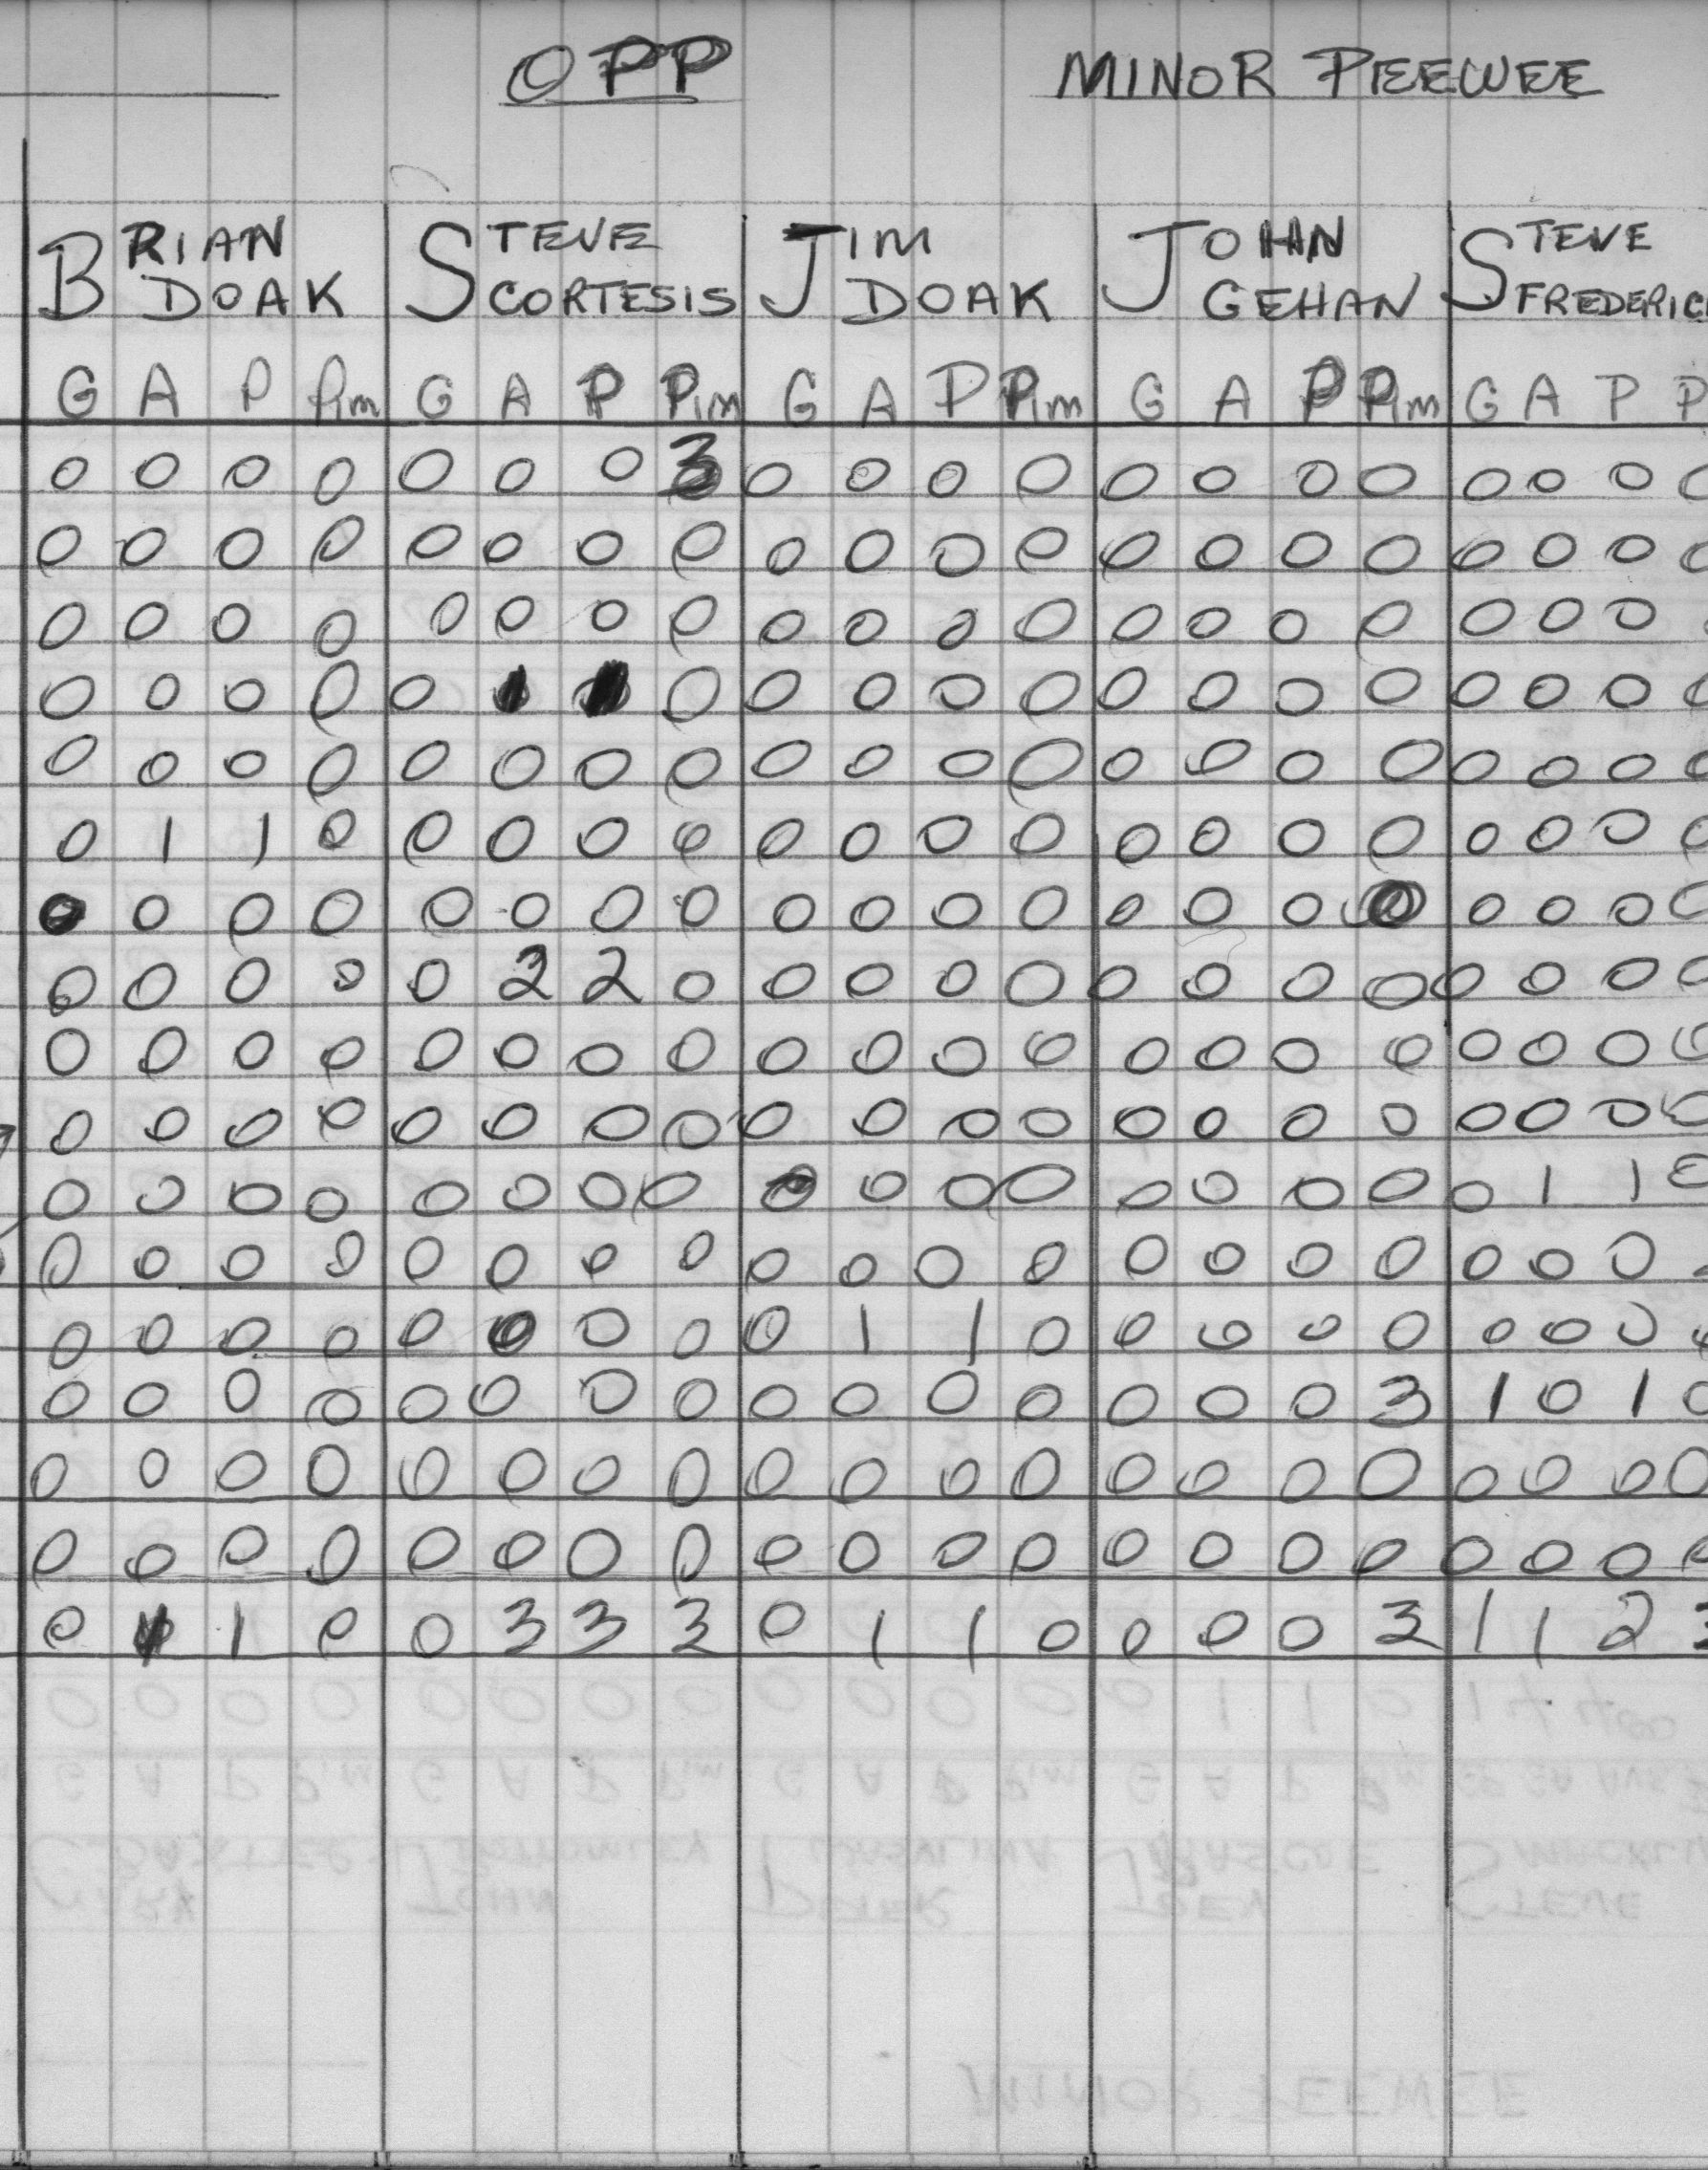 OPP MINOR PEEWEE
BRIAN STEVE JIM JOHN STEVE
DOAK CORTESIS DOAK GEHAN FREDERIC
G A P Pim G A P Pim G A P Pim G A P Pim G A P P
0 0 0 0 0 0 0 3 0 0 0 0 0 0 0 0 0 0 0 0
0 0 0 0 0 0 0 0 0 0 0 0 0 0 0 0 0 0 0 0
0 0 0 0 0 0 0 0 0 0 0 0 0 0 0 0 0 0 0
0 0 0 0 0 1 1 0 0 0 0 0 0 0 0 0 0 0 0 0
0 0 0 0 0 0 0 0 0 0 0 0 0 0 0 0 0 0 0 0
0 1 1 0 0 0 0 0 0 0 0 0 0 0 0 0 0 0 0 0
0 0 0 0 0 0 0 0 0 0 0 0 0 0 0 0 0 0 0 0
0 0 0 0 0 2 2 0 0 0 0 0 0 0 0 0 0 0 0 0
0 0 0 0 0 0 0 0 0 0 0 0 0 0 0 0 0 0 0 0
0 0 0 0 0 0 0 0 0 0 0 0 0 0 0 0 0 0 0 0
0 0 0 0 0 0 0 0 0 0 0 0 0 0 0 0 0 1 1 0
0 0 0 0 0 0 0 0 0 0 0 0 0 0 0 0 0 0 0
0 0 0 0 0 0 0 0 0 1 1 0 0 0 0 0 0 0 0
0 0 0 0 0 0 0 0 0 0 0 0 0 0 0 3 1 0 1 0
0 0 0 0 0 0 0 0 0 0 0 0 0 0 0 0 0 0 0 0
0 0 0 0 0 0 0 0 0 0 0 0 0 0 0 0 0 0 0 0
0 1 1 0 0 3 3 3 0 1 1 0 0 0 0 3 1 1 2